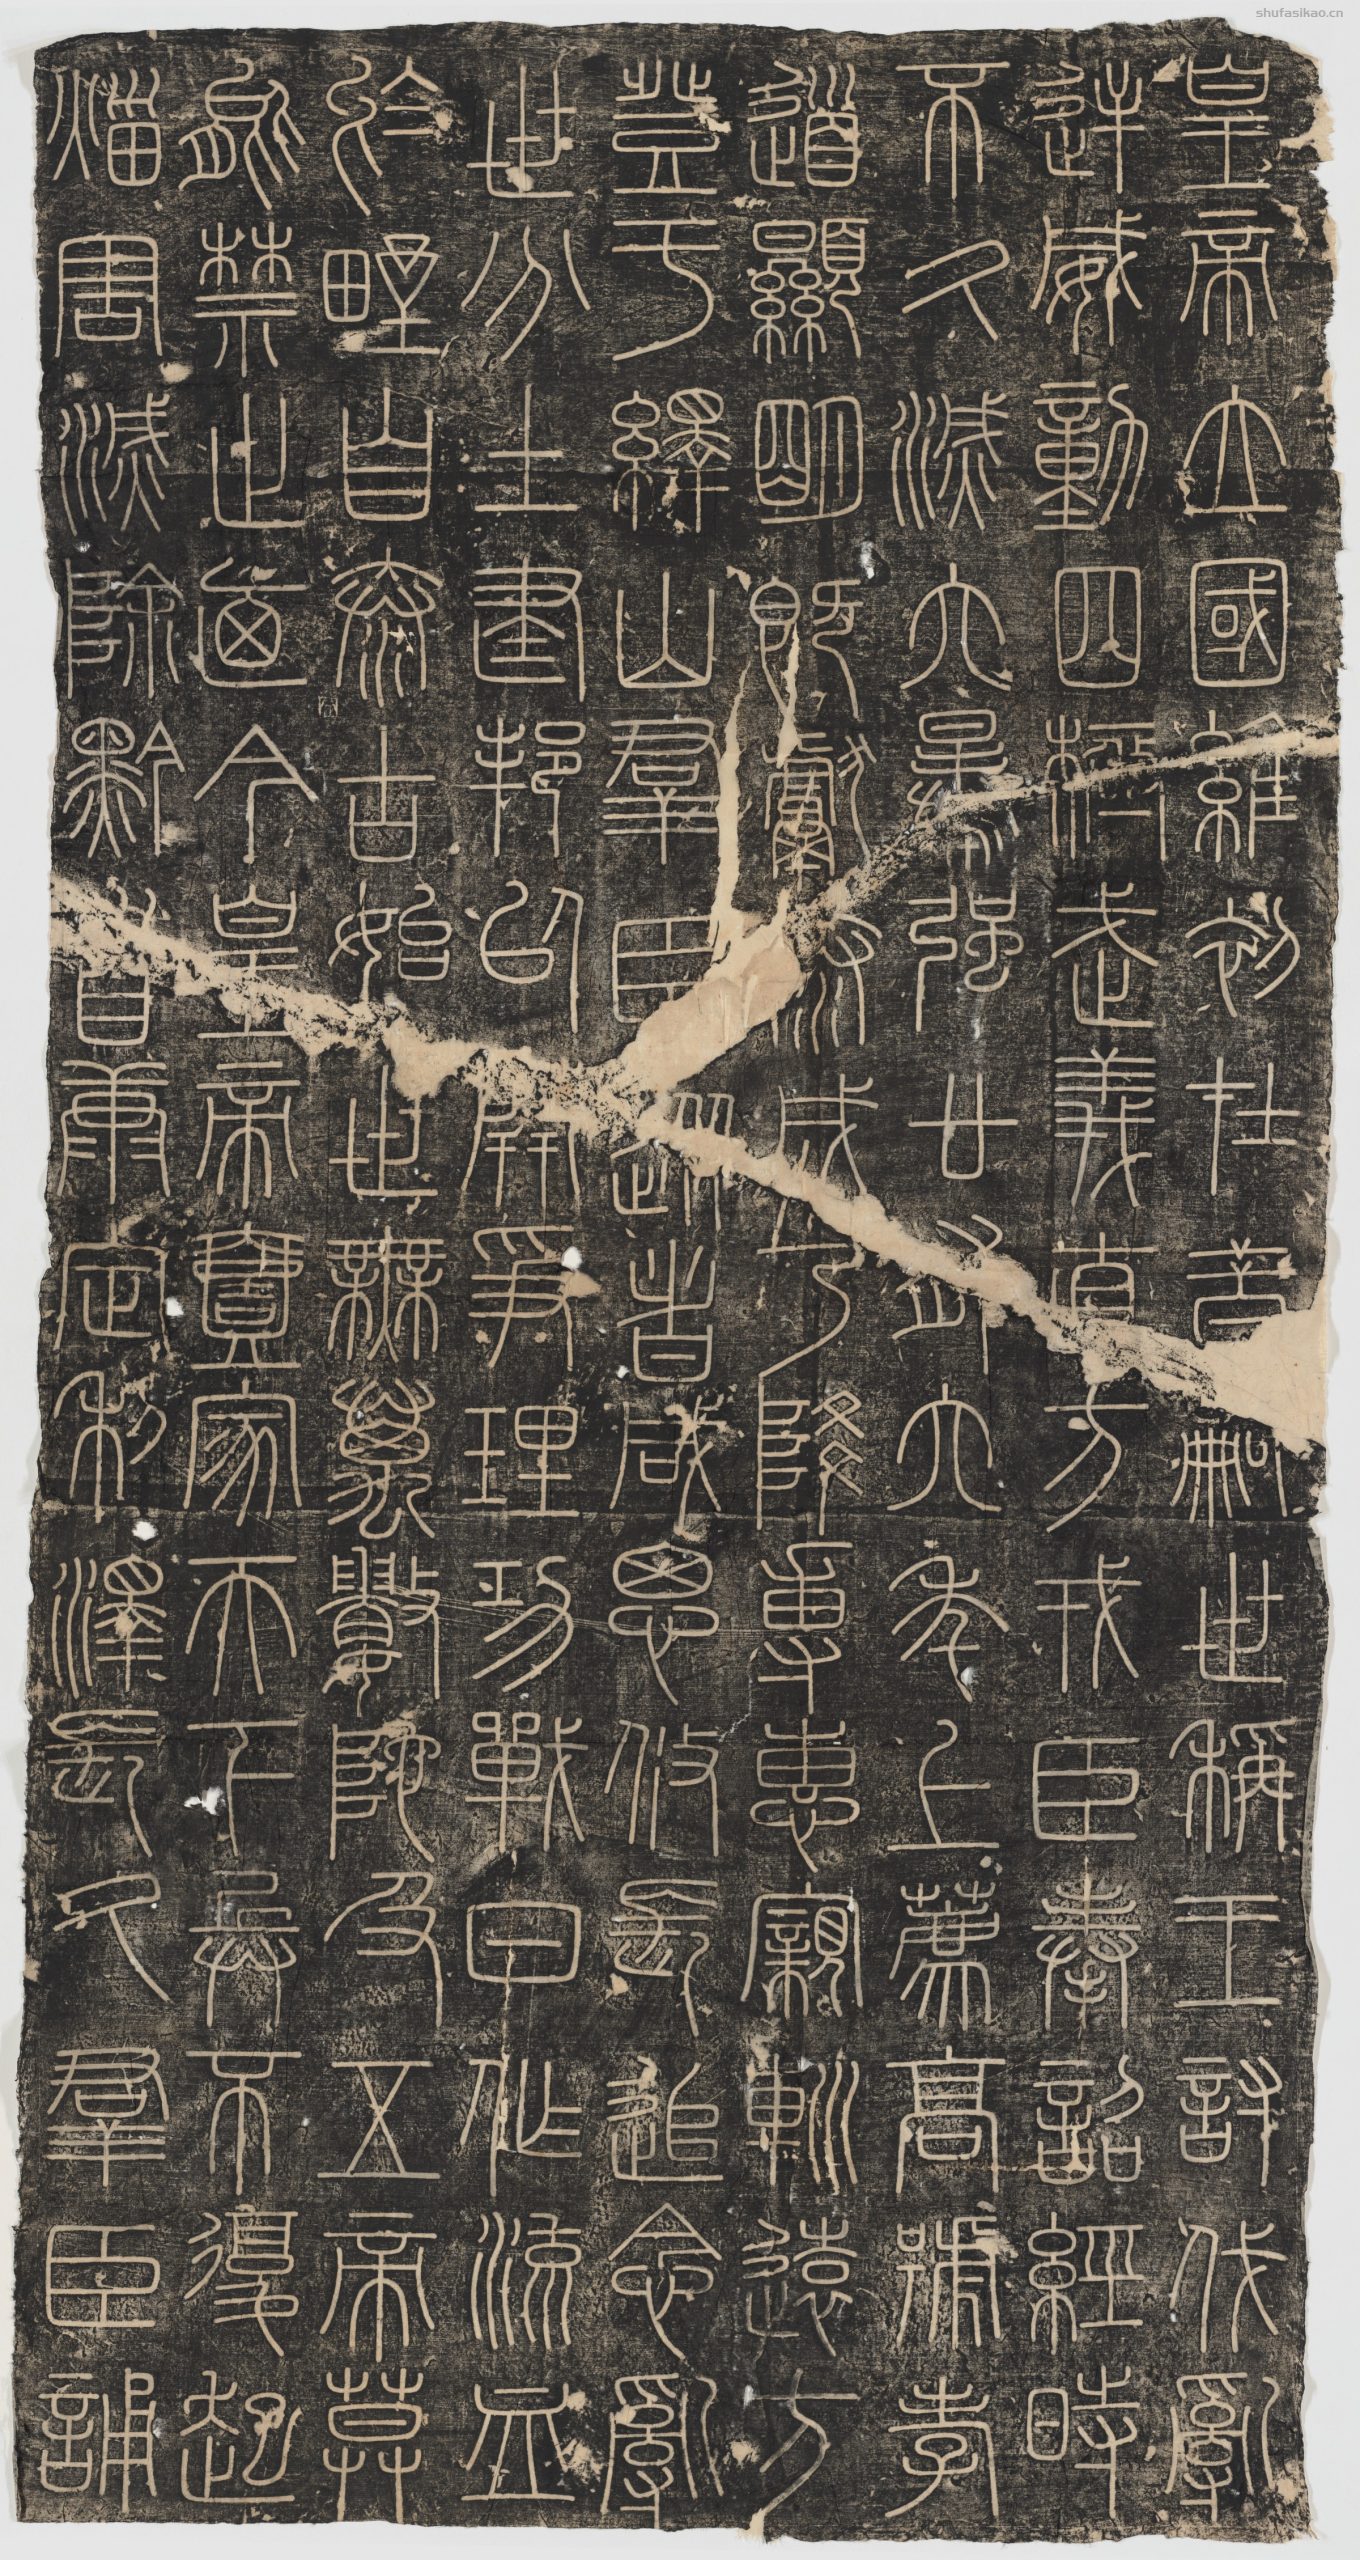 皇帝立國維初在昔嗣世稱王討伐亂
逆威動四極武義直方戎臣奉詔經時
不久滅六暴強廿有六年上薦高號孝
道顯明既獻泰成乃降專惠親巡遠方
登于繹山羣臣從者咸思攸長追念亂
世分土建邦以開爭理功戰日作流血
於野自泰古始世無萬數陀及五帝莫
能禁止迺今皇帝壹家天下兵不復起
烖害滅除黔首康定利澤長久羣臣誦
shufasikao.cn